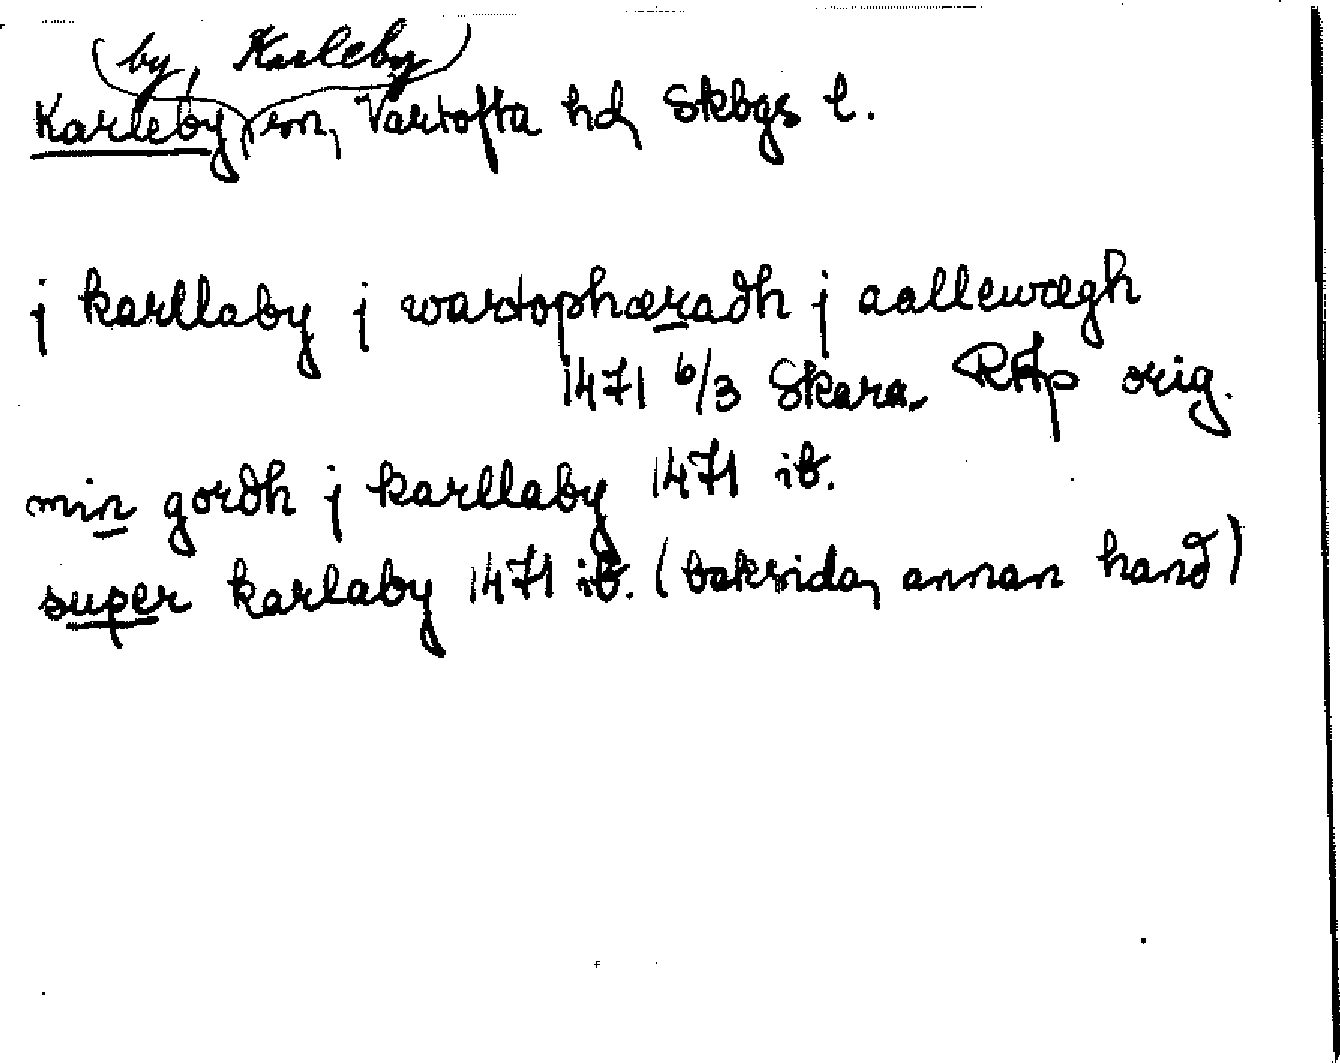 by, Karleby
Karleby, sn, Vartofta hd, Skbgs l.
j karllaby j wartophæradh j aallewægh
1471 6/3 Skara. RAp orig.
min gordh j karllaby 1471 ib.
super karlaby 1471 ib. (baksida, annan hand)